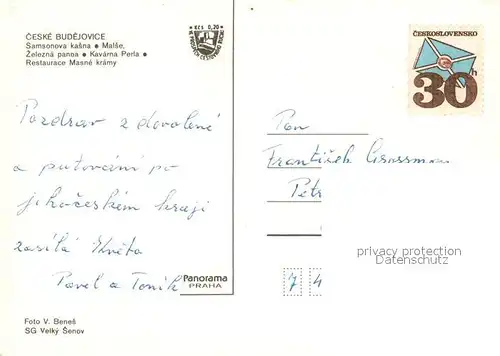 ČESKÉ BUDĚJOVICE
Samsonova kašna ● Malše,
Železná panna ● Kavárna Perla ●
Restaurace Masné krámy
Kčs 0,20
ČESKOSLOVENSKO
30 h
Pozdrav z dovolené
a putování po
jihočeském kraji
zasílá Květa
Pavel a Toník
Pan
František Grossman
Petr
7 4
privacy protection
Datenschutz
Panorama
PRAHA
Foto V. Beneš
SG Velký Šenov